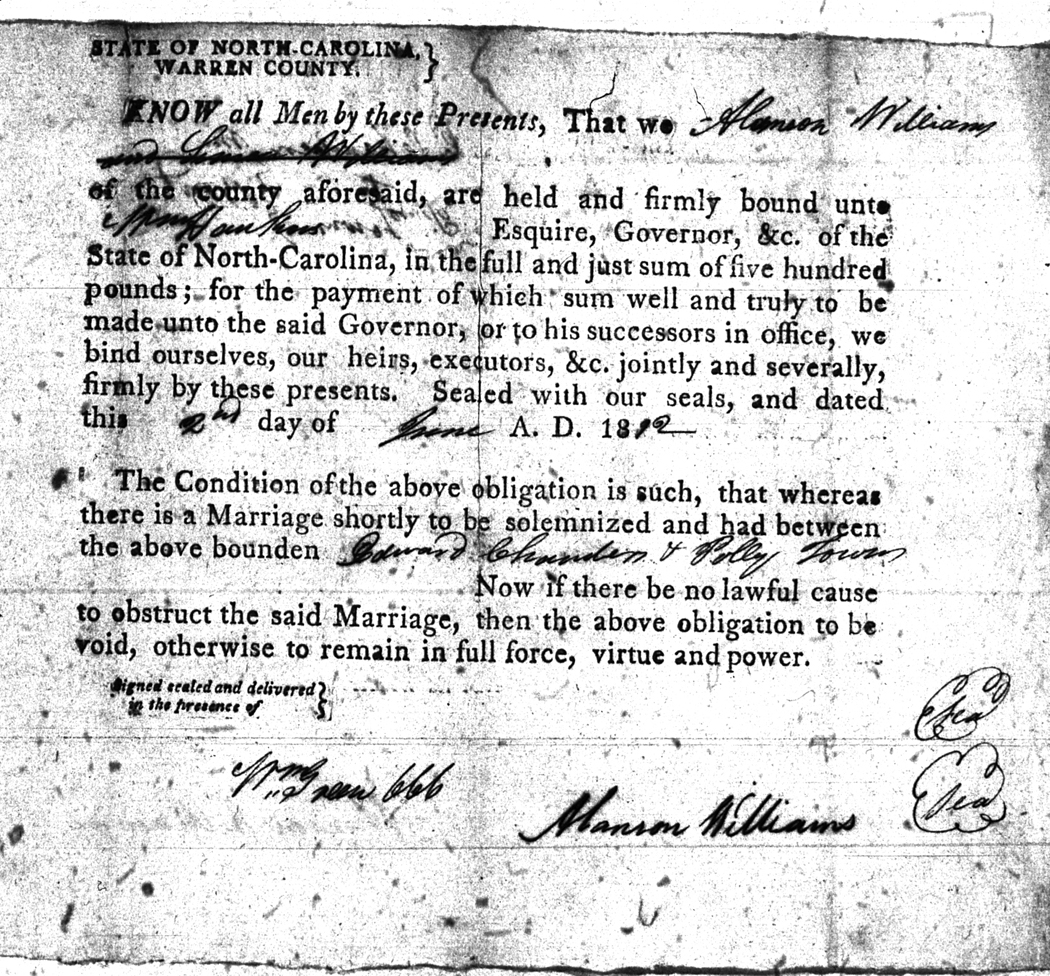 STATE OF NORTH-CAROLINA,
WARREN COUNTY.
KNOW all Men by these Presents, That we Alanson Williams
and Williams
of the county aforesaid, are held and firmly bound unto
Wm Hawkins Esquire, Governor, &c. of the
State of North-Carolina, in the full and just sum of five hundred
pounds; for the payment of which sum well and truly to be
made unto the said Governor, or to his successors in office, we
bind ourselves, our heirs, executors, &c. jointly and severally,
firmly by these presents. Sealed with our seals, and dated
this 2nd day of June A. D. 1812
The Condition of the above obligation is such, that whereas
there is a Marriage shortly to be solemnized and had between
the above bounden Edward & Polly Towns
Now if there be no lawful cause
to obstruct the said Marriage, then the above obligation to be
void, otherwise to remain in full force, virtue and power.
Signed sealed and delivered
in the presence of
Seal
Wm Green CCC
Alanson Williams Seal